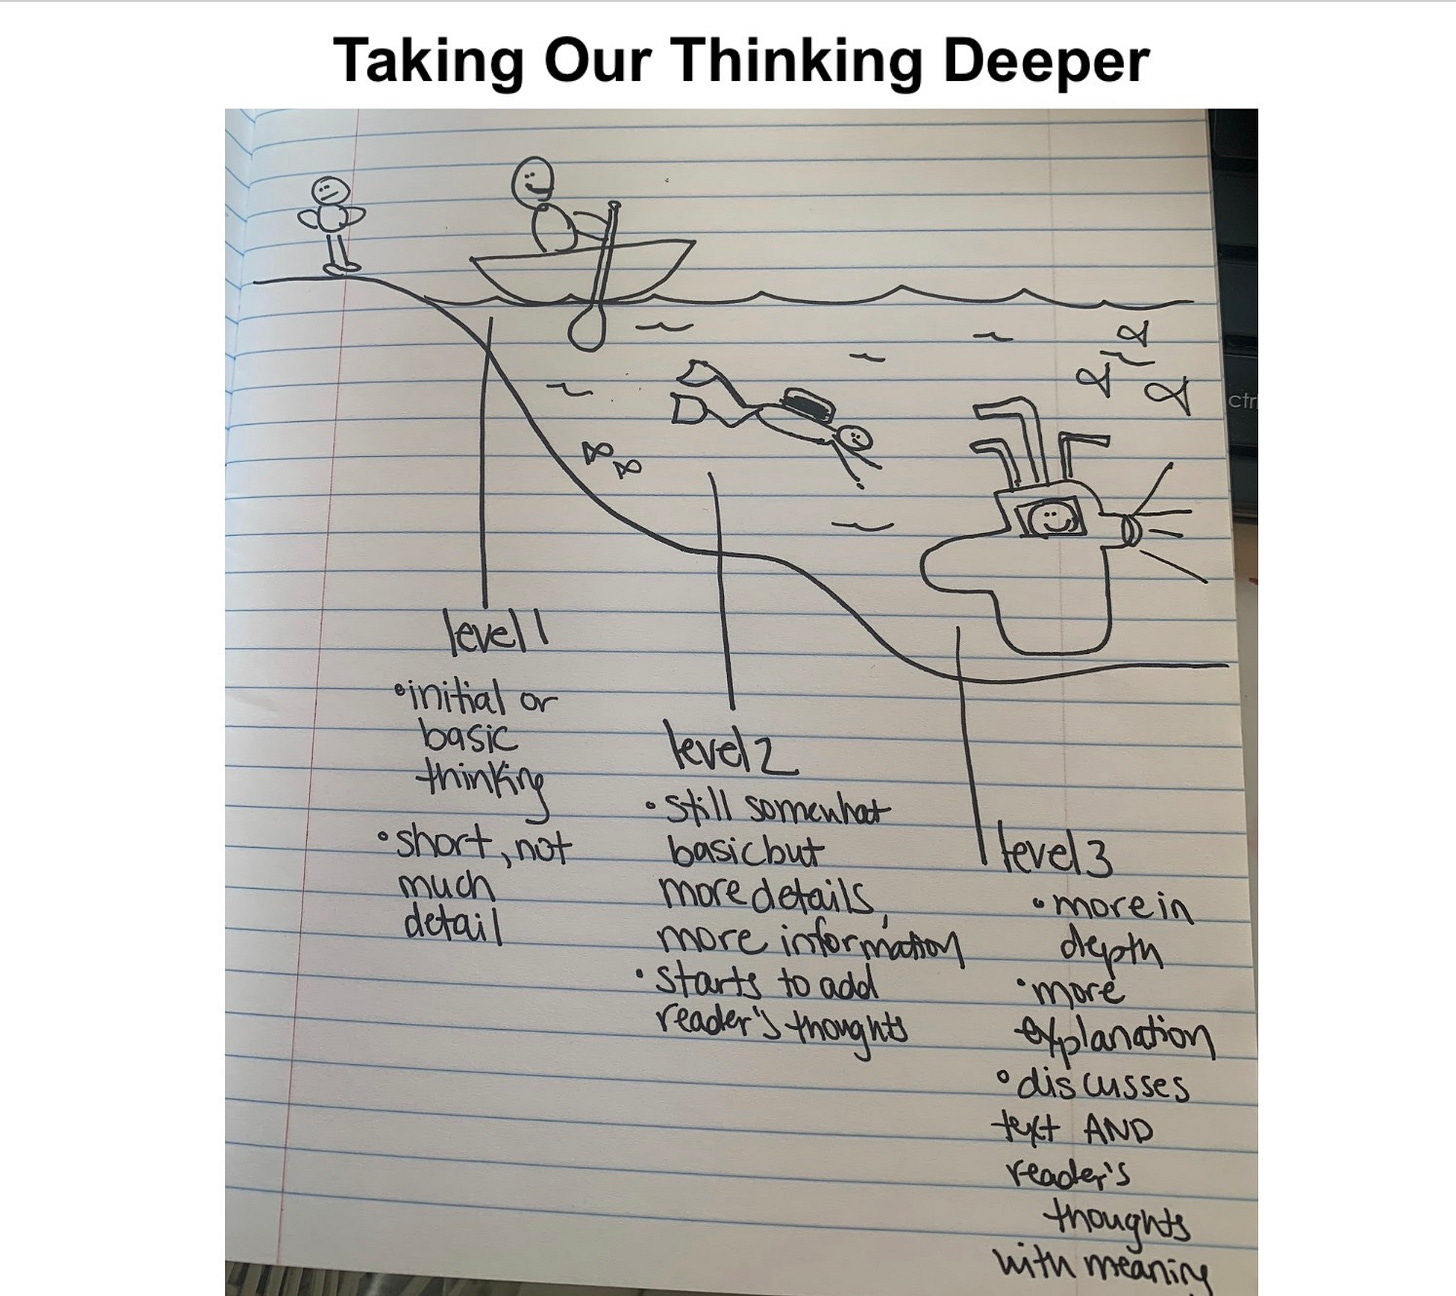 Taking Our Thinking Deeper
ctr
level 1
•initial or
basic
thinking
•short, not
much
detail
level 2
•still somewhat
basic but
more details,
more information
•starts to add
reader's thoughts
level 3
•more in
depth
•more
explanation
•discusses
text AND
reader's
thoughts
with meaning